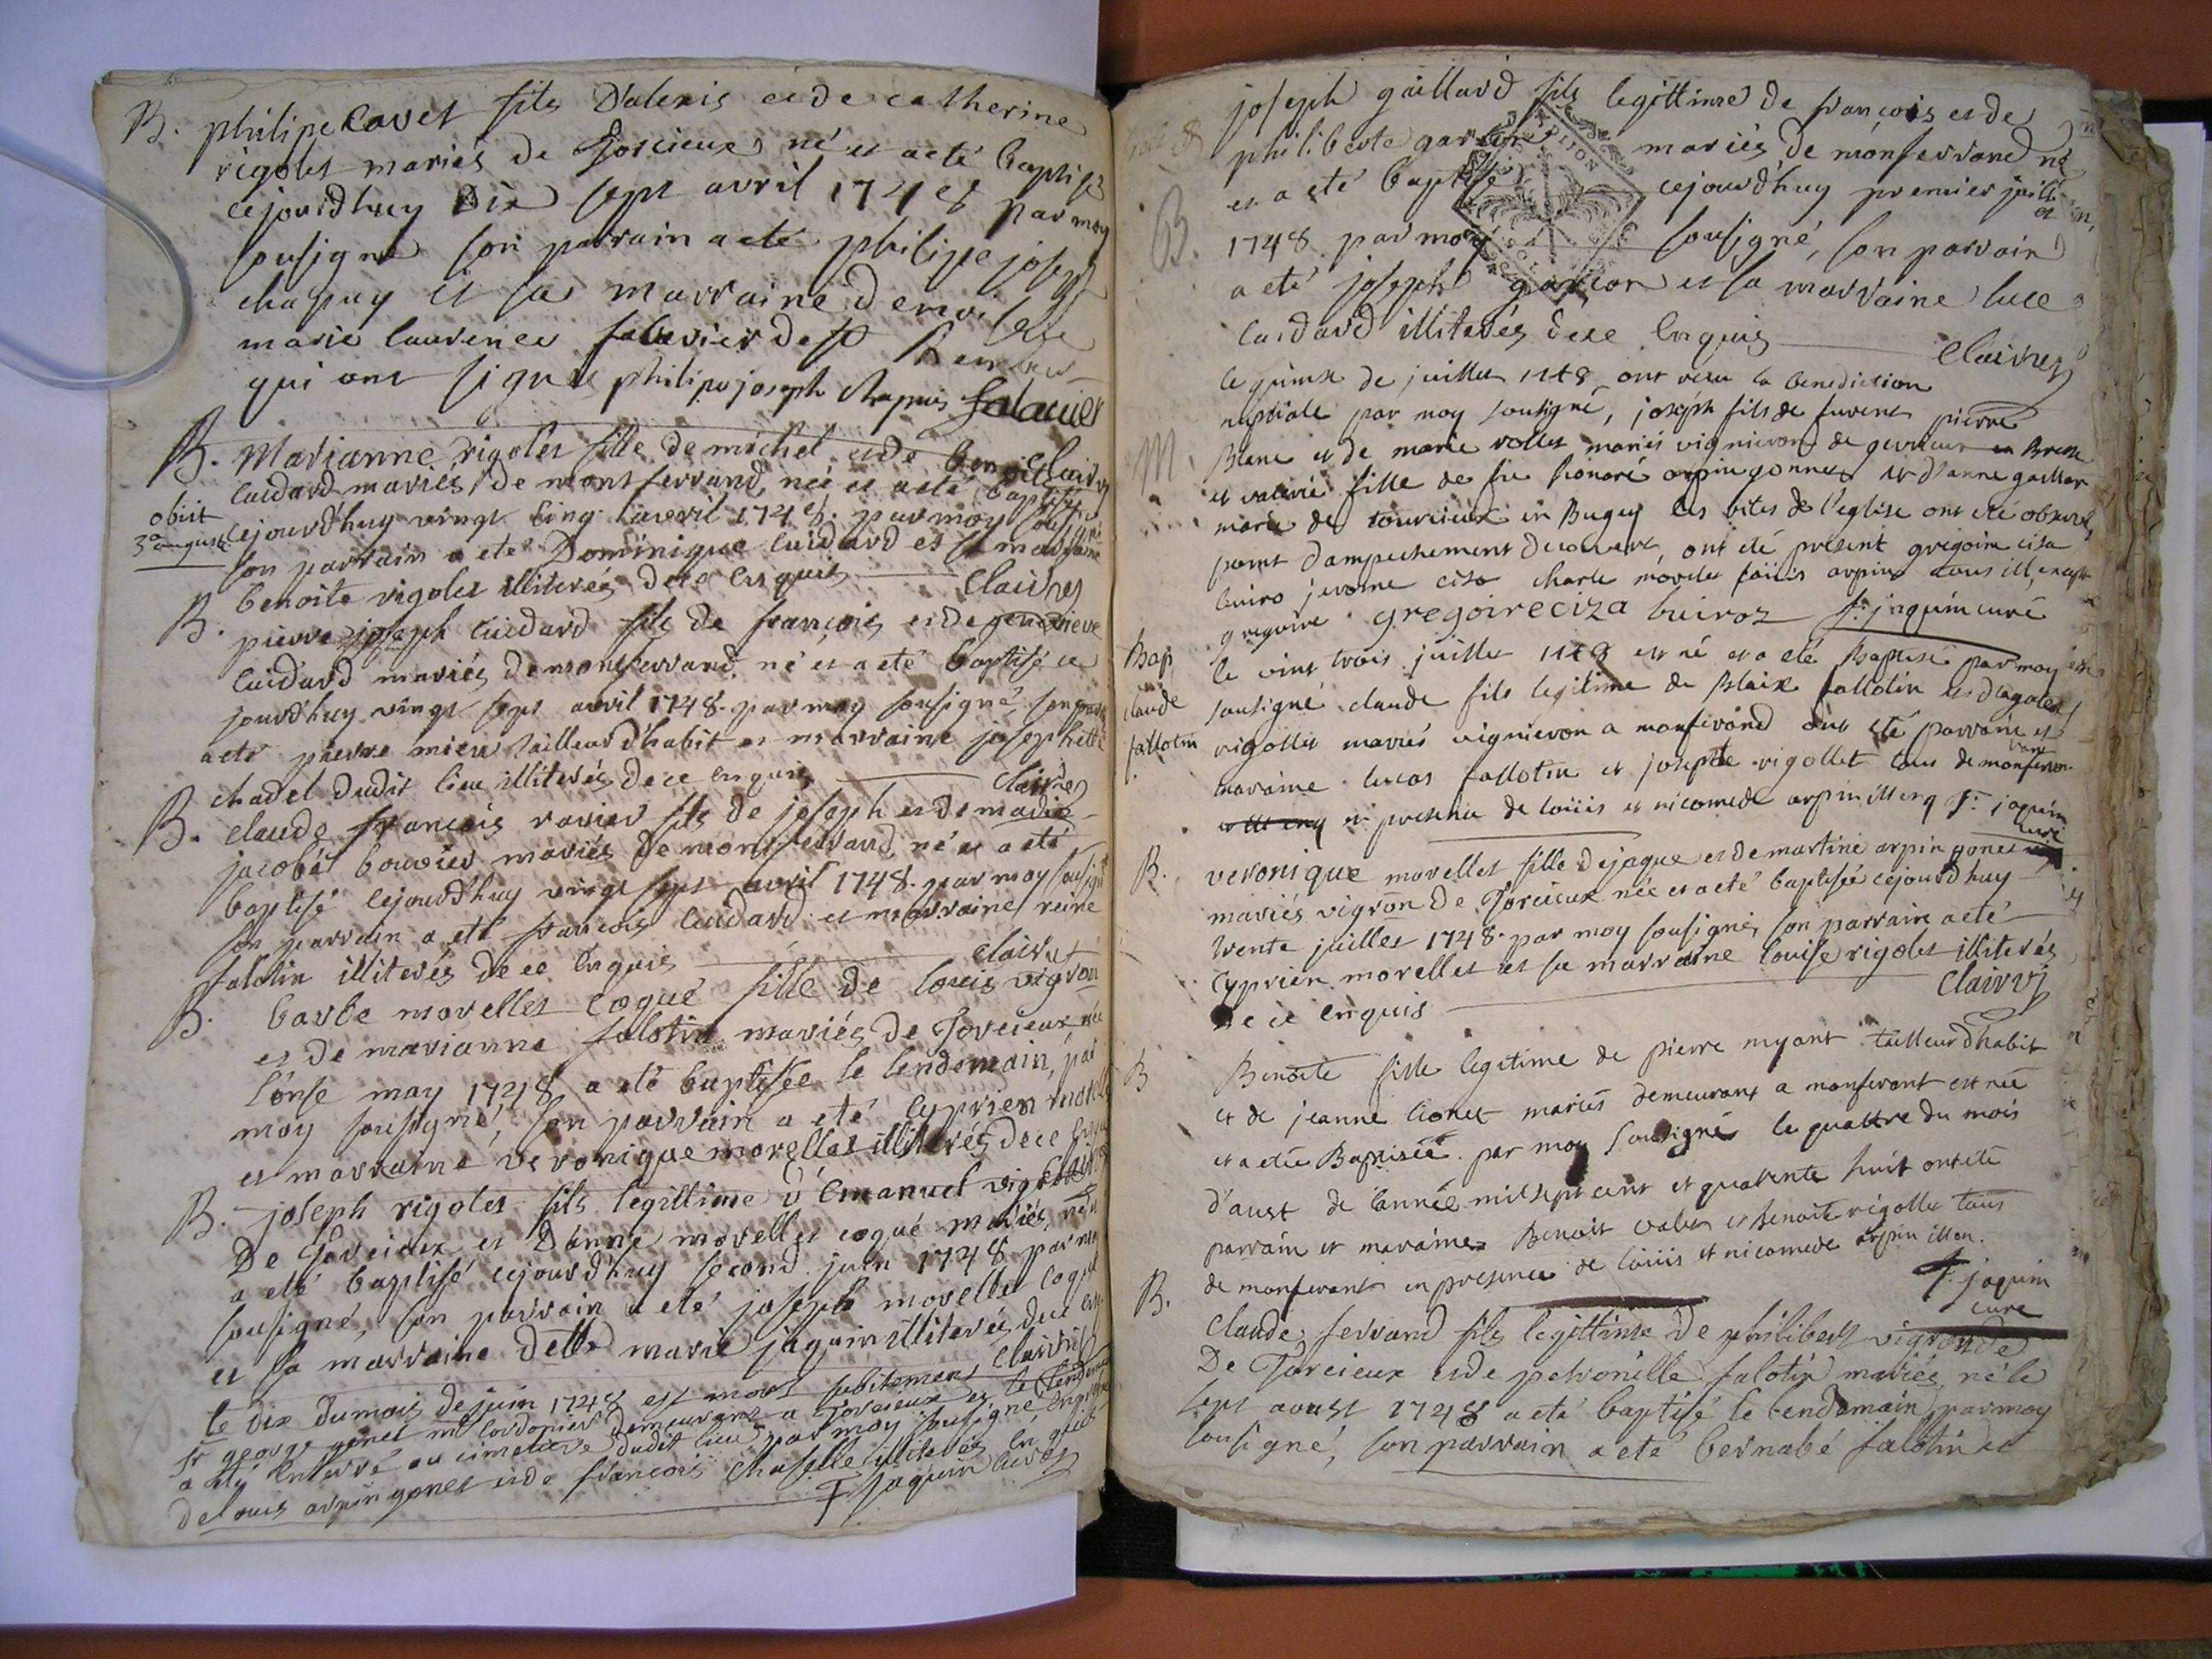 B. philipe Cavet fils D'alexis et de catherine
rigolet mariés de Torcieux né et a eté baptisé
cejourdhuy Dix sept avril 1748 par moy
sousigné son parrain a eté philipe joseph
chapuy et sa marraine demoiselle
marie laurence
qui ont signé philipe joseph chapuis
B. Marianne rigolet fille de michel et de
Cuidard mariés de montferrand, née et a eté baptisée
obiit
3a augusti
cejourdhuy vingt cinq avril 1748. par moy sousigné
son parrain a eté Dominique Cuidard et sa marraine
benoite rigolet illiterés de ce enquis Clairvy
B. pierre joseph Cuidard fils de françois et de genevieve
Cuidard mariés de montferrand. né et a eté baptisé ce
jourdhuy vingt sept avril 1748. par moy sousigné, son parr
a eté pierre mieu tailleur d'habit et marraine josephette
chadel dudit lieu illiterés de ce enquis Clairvy
B. Claude françois ravier fils de joseph et de marie
jacobét bouvier mariés de montferrand, né et a eté
baptisé cejourdhuy vingt sept avril 1748. par moy sousigné
son parrain a eté francois Cuidard et marraine reine
falotin illiterés de ce enquis Clairvy
B. barbe morellet coque fille de louis vigron
et de marianne falotin mariés de Torcieux née
l'onse may 1748 a eté baptisée le lendemain, par
moy sousigné, son parrain a eté cyprien morelle
et marraine veronique morellet illiterés de ce
B. joseph rigolet fils legittime d'Emanuel
De Torcieux et D'anne morellet coqué mariés, né
a eté baptisé cejourdhuy second juin 1748 par moy
sousigné, son parrain a eté joseph morellet coqué
et sa marraine delle marie jaquin illiterés de ce
Clairvy
Le dix du mois de juin 1748 est mort subitement
Sr george gonet m cordonier demeurant a Torcieux et le lendemain
a été enterré au cimetiere dudit lieu par moy sousigné
de louis arpin gonet et de françois chapelle illiterés
F jaquin curé
joseph gaillard fils legittime de françois et de
philiberte mariés de monferrand né
et a eté baptisé cejourdhuy premier juill
et
B. 1748 par moy sousigné, son parrain
a eté joseph et sa marraine luce
Cuidard illiterés de ce enquis Clairvy
le quinze de juillet 1748 ont recu la benediction
nuptiale par moy sousigné, joseph fils de furent pierre
M. Blanc et de marie rollet mariés vignieron de en Bresse
et valerie fille de fu honoré arpin gonnet et d'anne gaillar
mariés de tourcieux en Bugey les rites de l'eglise ont eté observé
point d'ampechement decouvert, ont eté present gregoire cisa
buiro jerome cisa charle morelet loüis arpin tous ill, except
gregoire gregoire ciza buiroz F: jaquin curé
Bap
claude
fallotin
le vint trois juillet 1748 est né et a eté Baptisé par moy
sousigné claude fils legitime de Blaix fallotin et d'agate
rigollet mariés vignieron a monferrand ont eté parrain et
maraine lucas fallotin et josepte rigollet tous de monferr
en presence de loüis et nicomede arpin ill enq F: jaquin
curé
B. veronique morellet fille de jaque et de martine arpin gonet
mariés vigron de Torcieux née et a eté baptisée cejourdhuy
trente juillet 1748. par moy sousigné, son parrain a eté
cyprien morellet et sa marraine louise rigolet illiterés
de ce enquis Clairvy
B Benoite fille legitime de pierre myant tailleur dhabit
et de jeanne lionet mariés demeurant a monferant est née
et a etée Baptisée par moy sousigné le quattre du mois
d'aust de l'année mil sept cent et quarente huit ont eté
parrain et maraine Benoit valet et benoite rigollet tous
de monferant en presence de loüis et nicomede arpin ill en.
F: jaquin
curé
B. Claude ferrand fils legittime de philibert vigron
De Torcieux et de petronille falotin mariés, né le
sept aoust 1748 a eté baptisé le lendemain par moy
sousigné, son parrain a eté bernabé falotin et